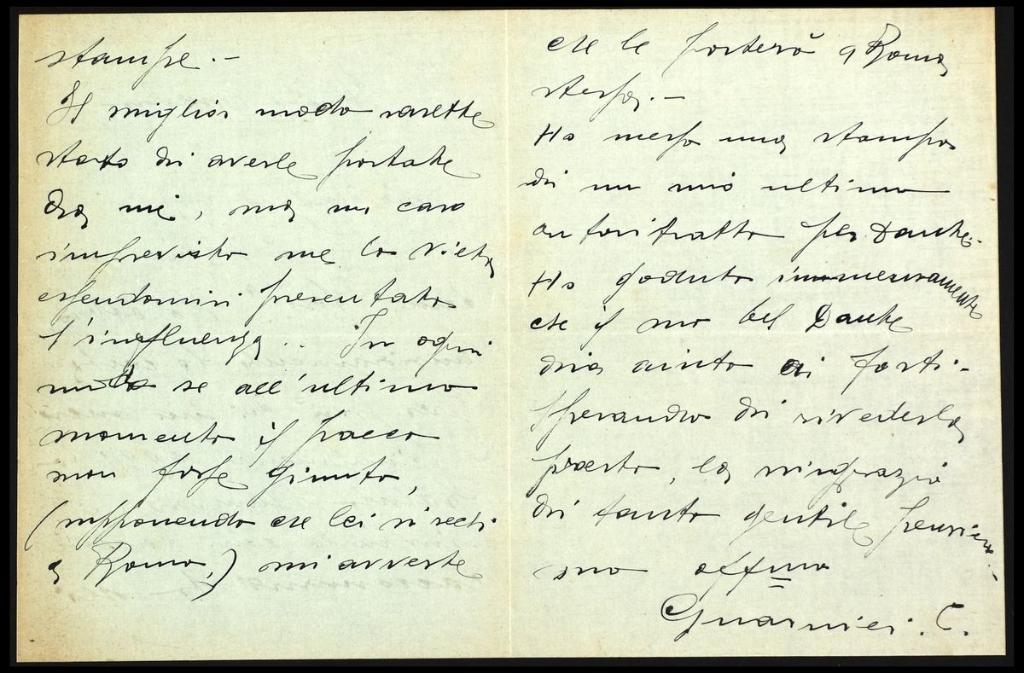 stampe. —
Il miglior modo sarebbe
stato di averle portate
da me, ma un caso
imprevisto me lo vieta
essendomisi presentata
l'influenza.. In ogni
modo se all'ultimo
momento il pacco
non fosse giunto,
(supponendo che lei si rechi
a Roma,) mi avverta
che le porterò a Roma
stessa. —
Ho messo una stampa
di un mio ultimo
autoritratto per Dante.
Ho goduto immensamente
che il suo bel Dante
dia aiuto ai forti.
Sperandro di rivederla
presto, la ringrazio
di tanto gentile pensiero.
suo affmo
Guarnieri. C.